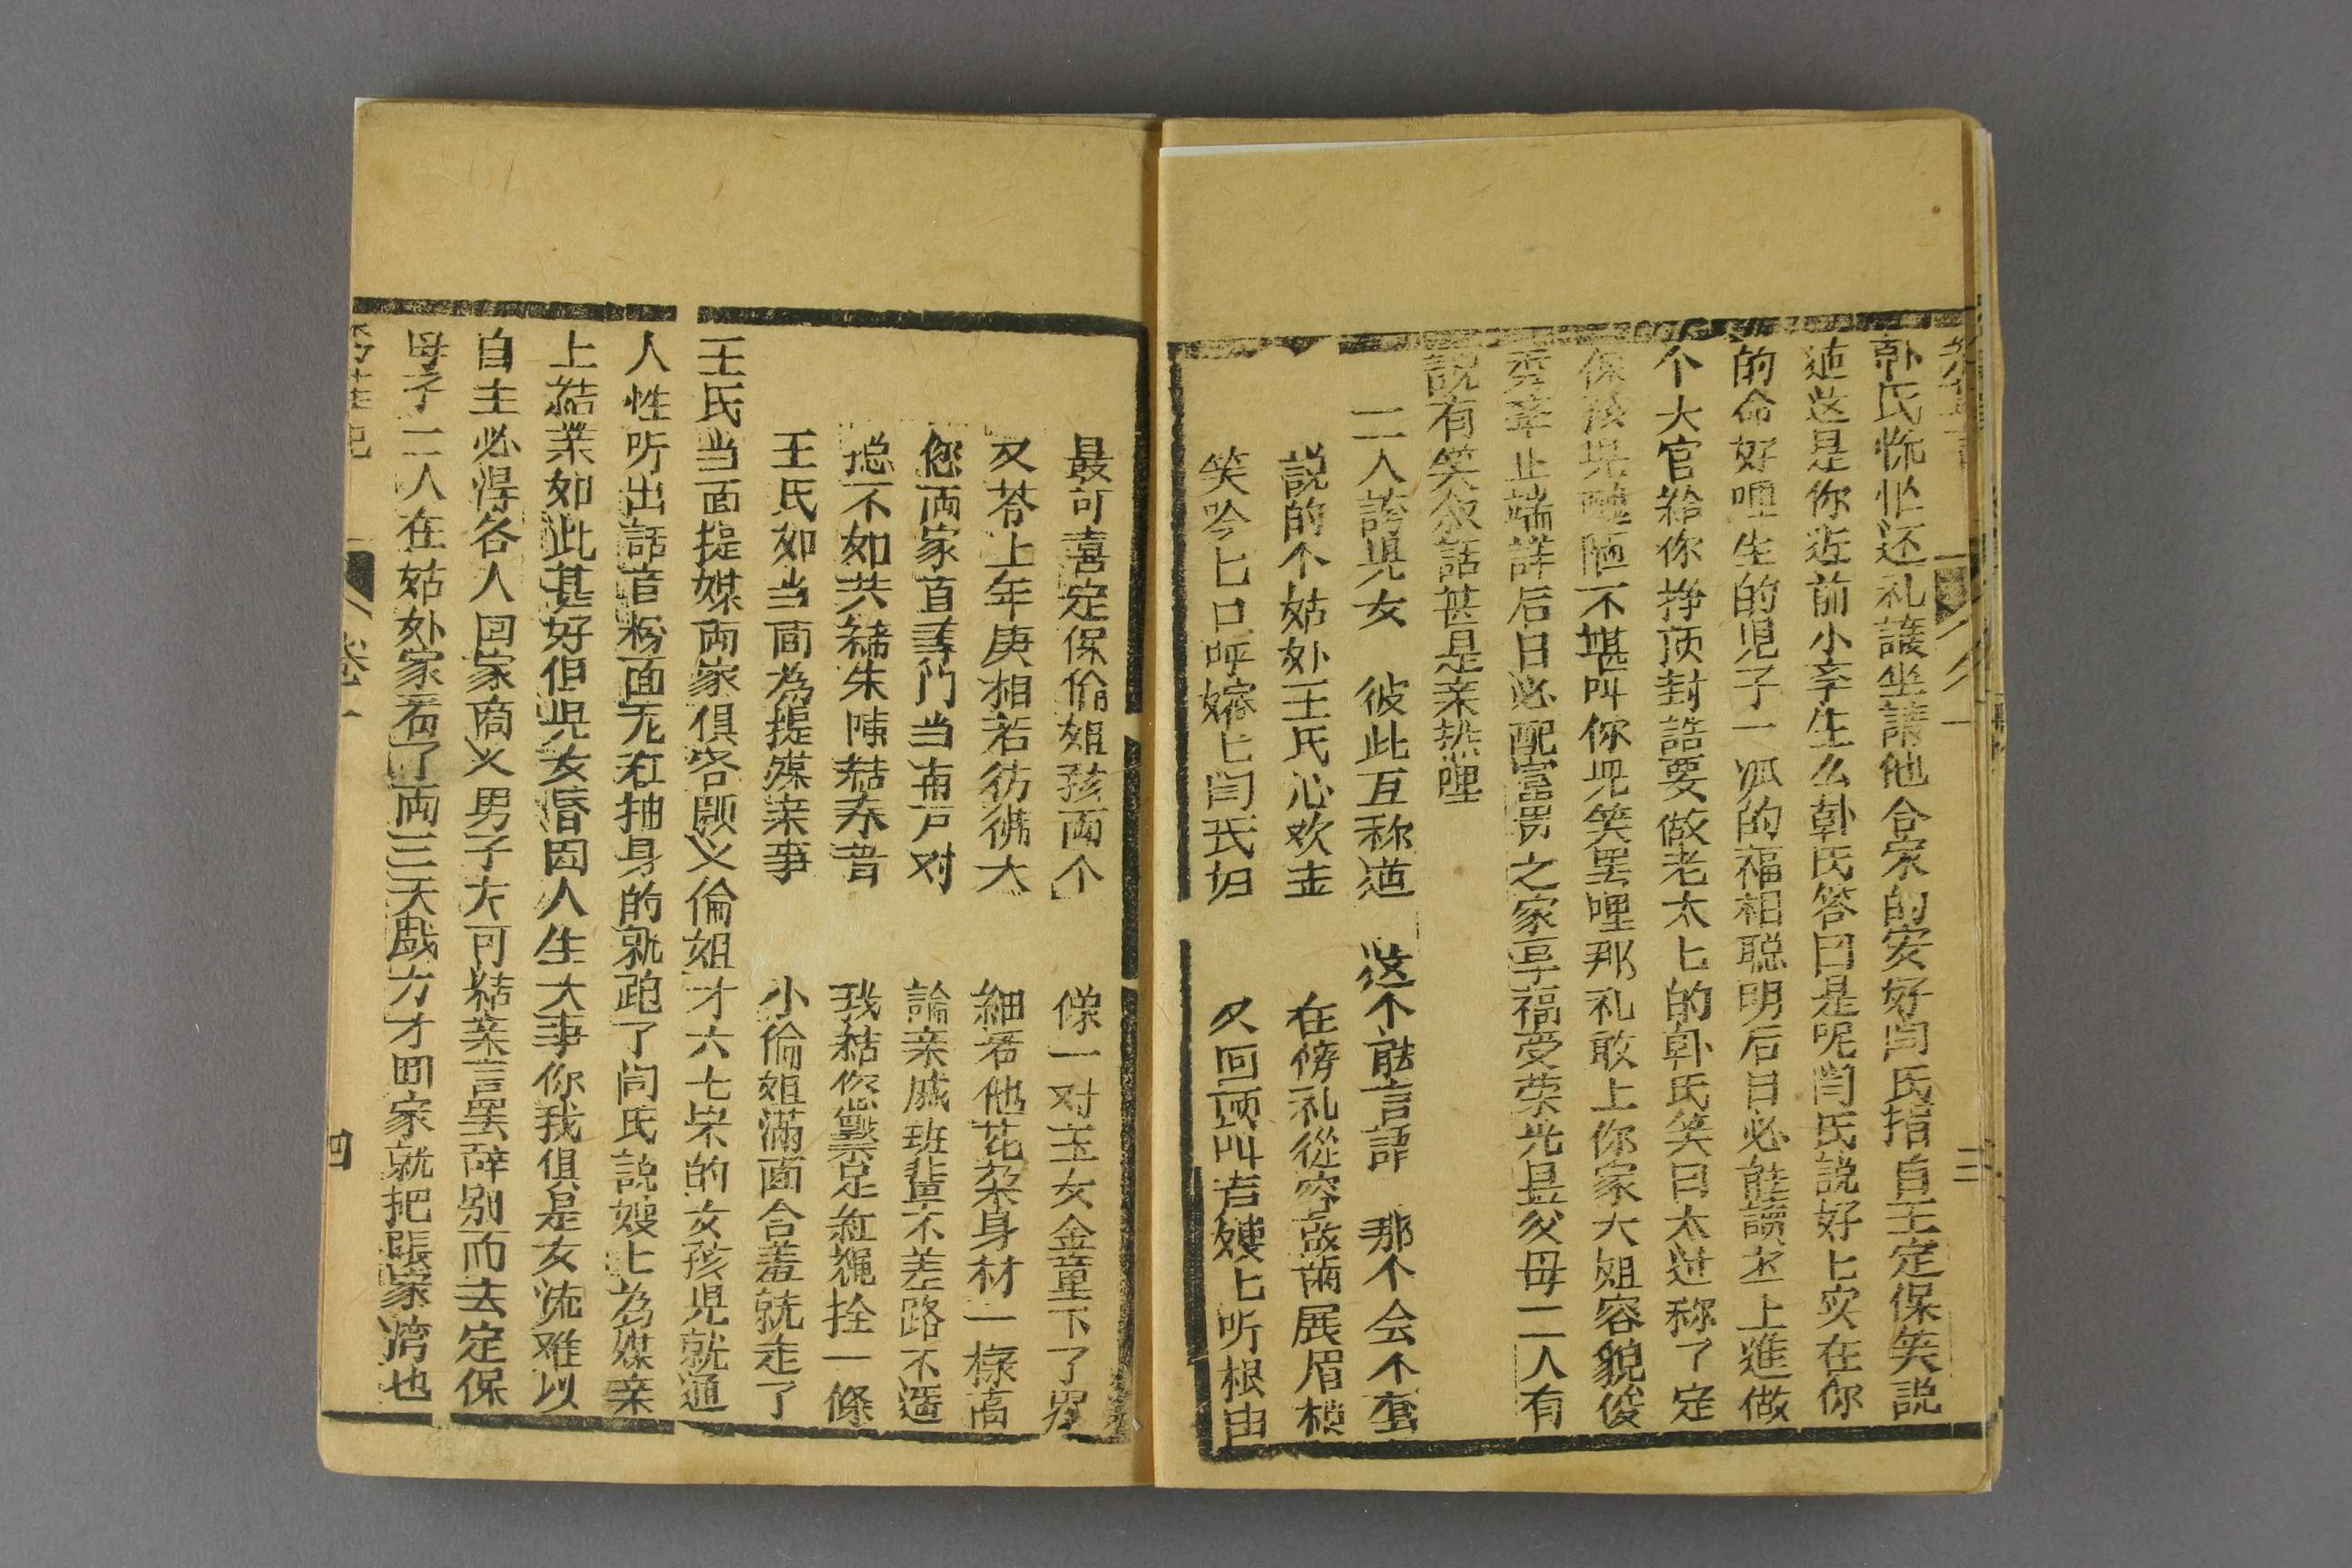 卧氏恠怅还礼讓坐請他合家的安好闫氏指自王定保笑説
道这是你近前小李生么卧氏答曰是呢闫氏説好匕实在你
的命好哩生的児子一派的福相聪明后日必能讀本上進做
个大官給你挣顶封誥要做老太匕的卧氏笑曰太过称了定
保孩児醜陋不堪叫你児笑罢哩那礼敢上你家大姐容貌俊
秀举止端詳后日必配富男之家享福受荣光是父母二人有
説有笑叙話甚是亲热哩
二人誇児女 彼此互称道 这个能言語 那个会个套
説的个姑妳王氏心欢 在傍礼從容 展眉
笑吟匕口呼嫁匕闫氏妇 又回頭叫吉嫂匕听根由
三
最可喜定保倫姐孩両个 像一对玉女金童下了
又若上年庚相若彷彿大 細看他花朶身材一樣高
您両家直算門当甫户对 論亲戚班輩不差路不遥
揔不如共結朱陳結春昔 我結您繫足紅繩拴一條
王氏如当面為提媒亲事 小倫姐滿面含羞就走了
王氏当面提媒両家俱容顾义倫姐才六七岁的女孩児就通
人性听出話音粉面无紅抽身的就跑了闫氏説嫂匕為媒亲
上結業如此甚好但児女昏因人生大事你我俱是女流难以
自主必得各人回家商义男子方可結亲言罢辞别而去定保
母子二人在姑妳家看了両三天戲方才回家就把張家湾也
卷一
四